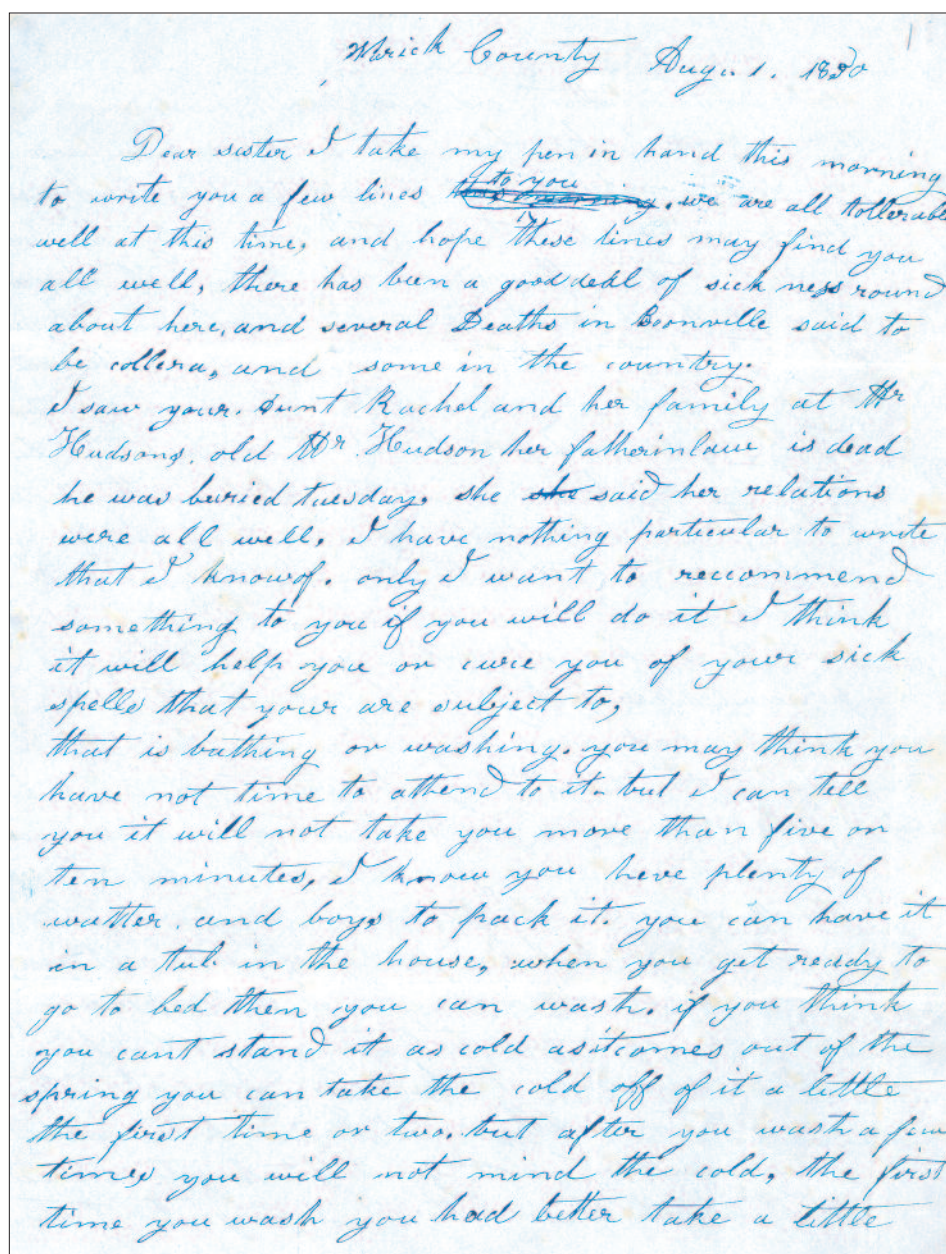 1
Wrick County Aug. 1. 1850
Dear sister I take my pen in hand this morning
to write you a few lines to you this morning, we are all tollerable
well at this time, and hope these lines may find you
all well, there has been a good deal of sick ness round
about here, and several Deaths in Boonville said to
be collera, and some in the country.
I saw your Aunt Rachel and her family at Mr
Hudsons, old Mr Hudson her fatherinlaw is dead
he was buried tuesday, she she said her relations
were all well, I have nothing particular to write
that I knowof. only I want to reccommend
something to you if you will do it I think
it will help you or cure you of your sick
spells that your are subject to,
that is bathing or washing. you may think you
have not time to attend to it. but I can tell
you it will not take you more than five or
ten minutes, I know you heve plenty of
watter and boys to pack it. you can have it
in a tub in the house, when you get ready to
go to bed then you can wash. if you think
you cant stand it as cold asitcomes out of the
spring you can take the cold off of it a little
the first time or two. but after you wash a few
times you will not mind the cold, the first
time you wash you had better take a little